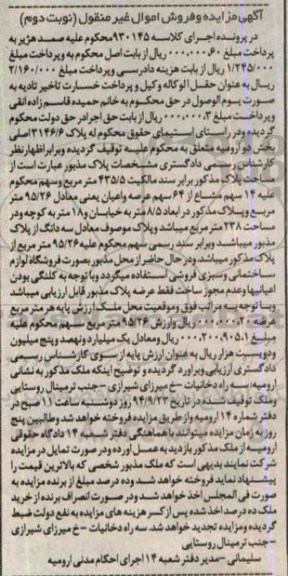 آگهی مزایده وفروش اموال غیر منقول (نوبت دوم)
در پرونده اجرای کلاسه ۹۳۰۱۴۵ محکوم علیه صمد هژیر به
پرداخت مبلغ ۶۰,۰۰۰,۰۰۰ ریال از بابت اصل محکوم به وپرداخت مبلغ
۱/۲۴۵/۰۰۰ ریال از بابت هزینه دادرسی وپرداخت مبلغ ۲/۱۶۰/۰۰۰
ریال به عنوان حق الوکاله وکیل و پرداخت خسارت تاخیر تادیه به
صورت یوم الوصول در حق محکوم له خانم حمیده قاسم زاده انقی
وپرداخت مبلغ ۳,۰۰۰,۰۰۰ ریال از بابت حق اجرا در حق دولت محکوم
گردیده ودر راستای استیفای حقوق محکوم له پلاک ۳۱۴۶/۶ اصلی
بخش دو ارومیه متعلق به محکوم علیه توقیف گردیده وبرابر اظهار نظر
کارشناس رسمی دادگستری مشخصات پلاک مذبور عبارت است از
مساحت پلاک مذکور برابر سند مالکیت ۴۳۵/۵ متر مربع وسهم محکوم
علیه ۱۴ سهم مشاع از ۶۴ سهم عرصه واعیان یعنی معادل ۹۵/۲۶ متر
مربع وپلاک مذکور در ابعاد ۸/۵ متر به خیابان و۱۸ متر به کوچه ودر
مساحت ۲۳۸ متر مربع میباشد وپلاک موصوف معادل سه دانگ از پلاک
مذبور میباشد وبرابر سند رسمی سهم محکوم علیه ۹۵/۲۶ متر مربع از
پلاک مذکور میباشد ودر حال حاضر از محل مذبور بصورت فروشگاه لوازم
ساختمانی وسبزی فروشی استفاده میگردد وبا توجه به کلنگی بودن
اعیانیها وعدم مجوز ساخت فقط عرصه پلاک مذبور قابل ارزیابی میباشد
وبا توجه به مراتب فوق وموقعیت محل ملک ارزش پایه هر متر مربع
عرصه ۲۰,۰۰۰,۰۰۰ ریال وارزش ۹۵/۲۶ متر مربع سهم محکوم علیه
مبلغ ۱,۹۰۵,۲۰۰,۰۰۰ ریال ومعادل یک میلیارد ونهصد وپنج میلیون
ودویست هزار ریال به عنوان ارزش پایه از سوی کارشناس رسمی
دادگستری ارزیابی وبراورد گردیده و توضیح اینکه ملک مذکور به نشانی
ارومیه سه راه دخانیات -خ میرزای شیرازی -جنب ترمینال روستایی
وملک توقیف شده در تاریخ ۹۴/۹/۲۳ روز دوشنبه ساعت ۱۱ صبح در
دفتر شماره ۱۴ ارومیه واز طریق مزایده فروخته خواهد شد وطالبین پنج
روز به زمان مزایده میتوانند با هماهنگی دفتر شعبه ۱۴ دادگاه حقوقی
ارومیه از ملک مذکور بازدید به عمل اورده ودر صورت تمایل در مزایده
شرکت نمایند بدیهی است که ملک مذبور شخصی که بالاترین قیمت را
پیشنهاد نماید فروخته خواهد شد وده درصد مبلغ از برنده مزایده به
صورت فی المجلس اخذ خواهد شد ودر صورت انصراف برنده از خرید
ملک ده درصد اخذ شده پس از کسر هزینه های مزایده به نفع دولت ضبط
گردیده ومزایده تجدید خواهد شد. سه راه دخانیات -خ میرزای شیرازی
-جنب ترمینال روستایی
سلیمانی -مدیر دفتر شعبه ۱۴ اجرای احکام مدنی ارومیه